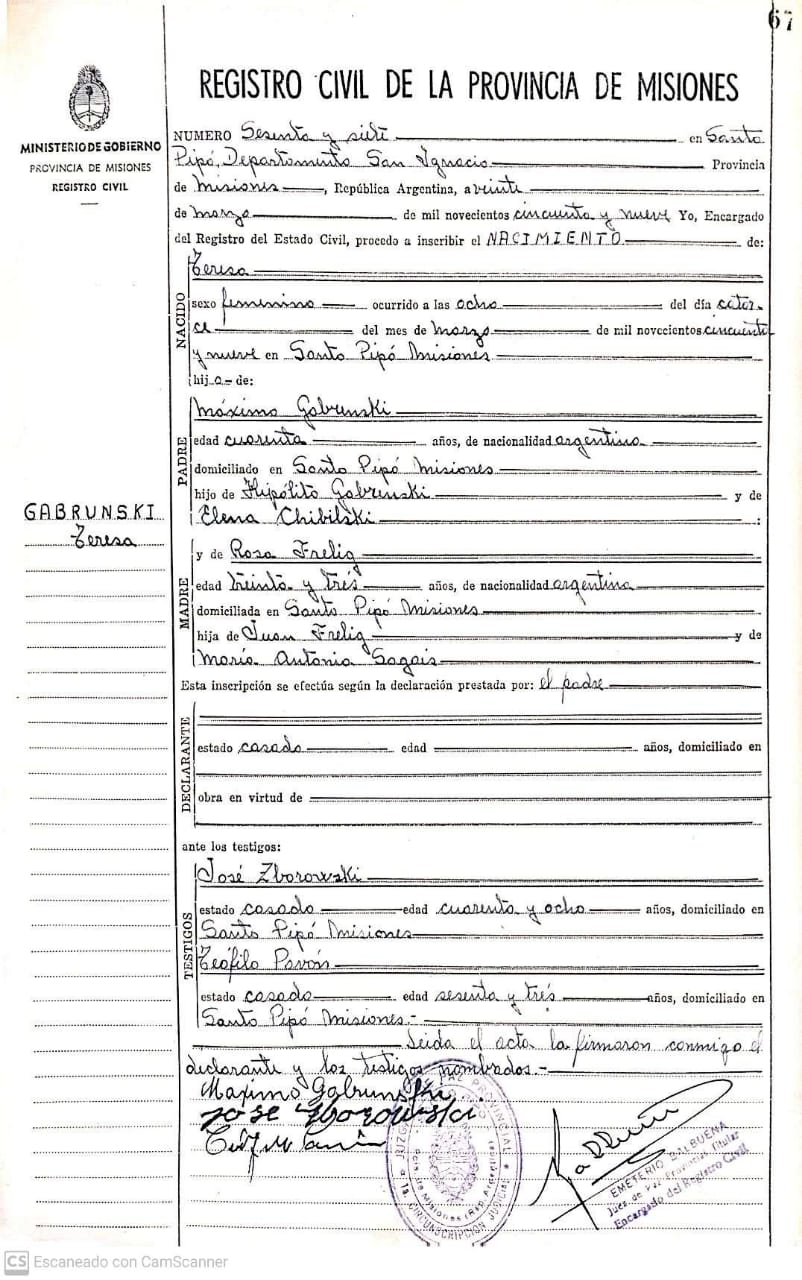 67
REGISTRO CIVIL DE LA PROVINCIA DE MISIONES
MINISTERIO DE GOBIERNO
PROVINCIA DE MISIONES
REGISTRO CIVIL
NUMERO Sesenta y siete en Santo
Pipó, Departamento San Ignacio Provincia
de Misiones, República Argentina, a veinte
de marzo de mil novecientos cincuenta y nueve Yo, Encargado
del Registro del Estado Civil, procedo a inscribir el NACIMIENTO de:
NACIDO
Teresa
sexo femenino ocurrido a las ocho del día cator-
ce del mes de marzo de mil novecientos cincuenta
y nueve en Santo Pipó Misiones
hija de:
PADRE
Máximo Gabrunski
edad cuarenta años, de nacionalidad argentino
domiciliado en Santo Pipó Misiones
hijo de Hipólito Gabrunski y de
Elena Chibilski :
GABRUNSKI
Teresa
MADRE
y de Rosa Frelig
edad treinta y trés años, de nacionalidad argentina
domiciliada en Santo Pipó Misiones
hija de Juan Frelig y de
María Antonia Sagais
Esta inscripción se efectúa según la declaración prestada por: el padre
DECLARANTE
estado casado edad años, domiciliado en
obra en virtud de
ante los testigos:
TESTIGOS
José Zborowski
estado casado edad cuarenta y ocho años, domiciliado en
Santo Pipó Misiones
Teófilo Pavón
estado casado edad sesenta y trés años, domiciliado en
Santo Pipó Misiones.-
Leida el acta la firmaron conmigo el
declarante y los testigos nombrados.-
Maximo Gabrunski
Jose Zborowski
JUZG PAZ PROVINCIAL
Pcia. de Misiones (Rep. Argentina)
1a. CIRCUNSCRIPCION JUDICIAL
EMETERIO BALBUENA
Juez de Paz Provincial Titular
Encargado del Registro Civil
CS Escaneado con CamScanner